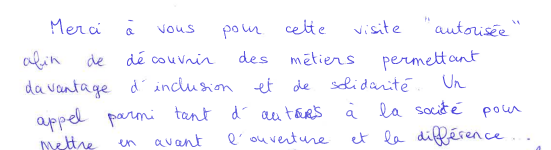 Merci à vous pour cette visite "autorisée"
afin de découvrir des métiers permettant
davantage d'inclusion et de solidarité. Un
appel parmi tant d'autres à la société pour
mettre en avant l'ouverture et la différence...